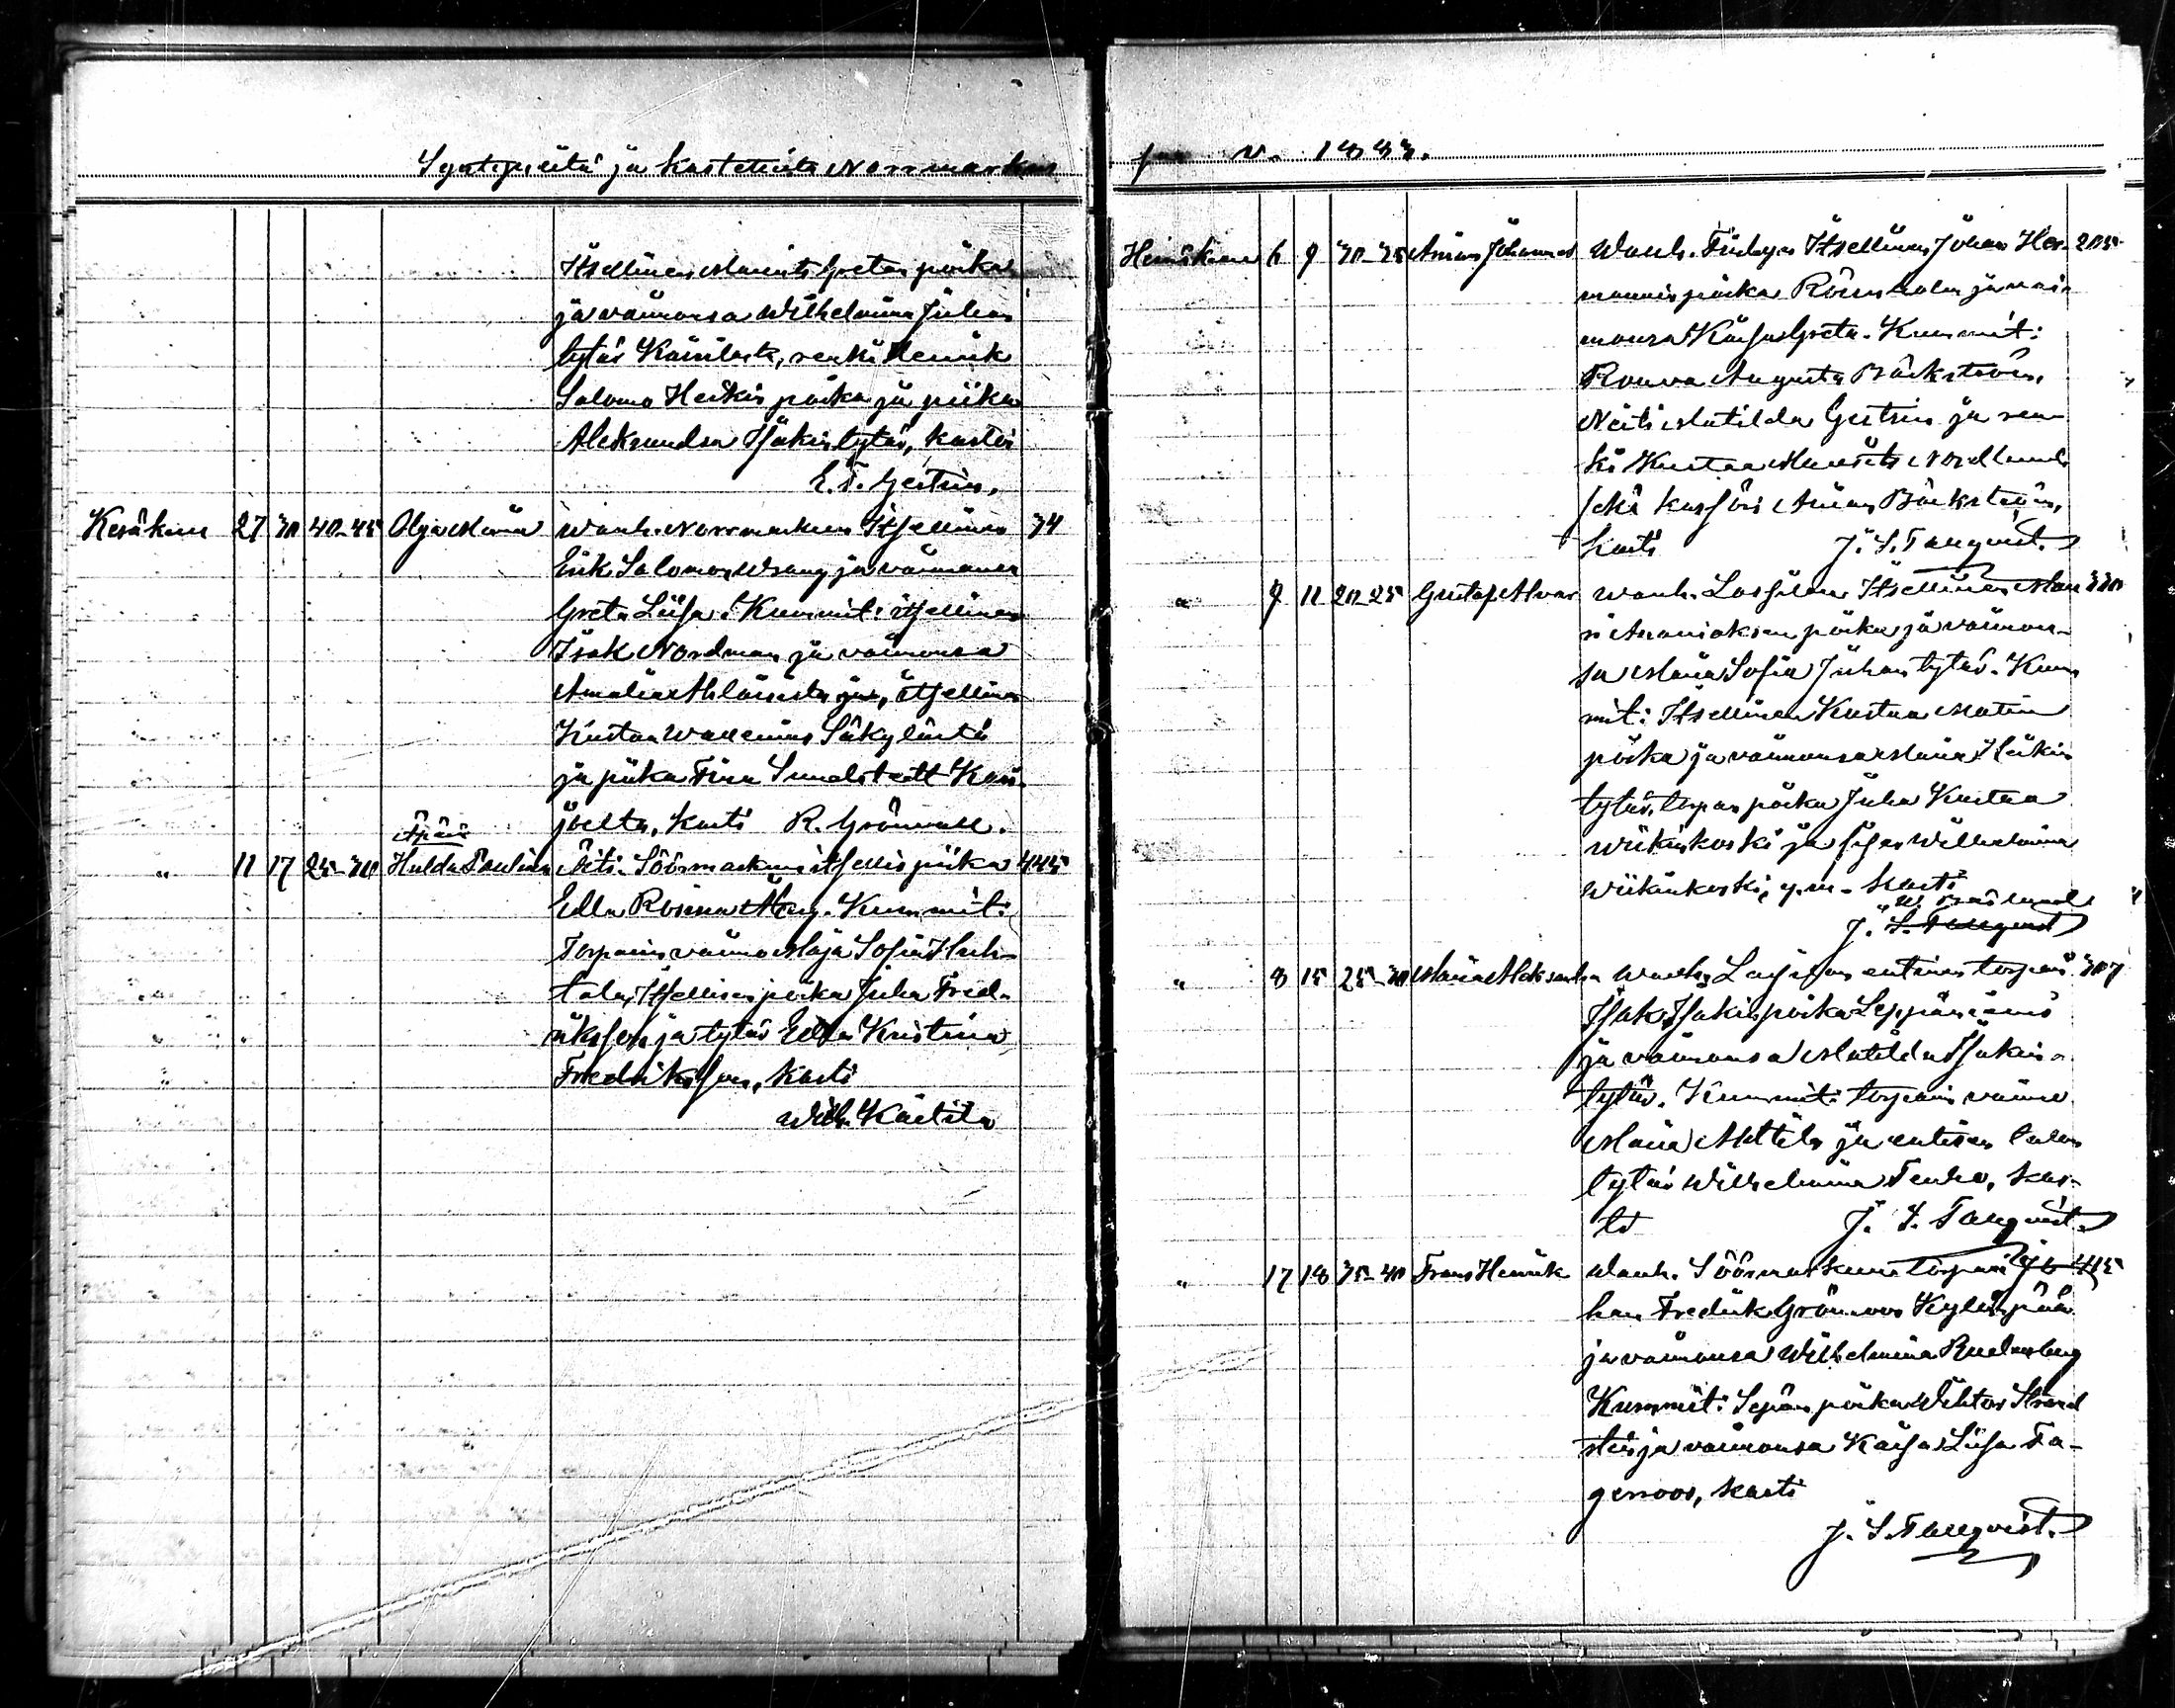 Syntyneitä ja kastetuita Norrmarkus
Itsellinen Mauits Gretan poika
ja vaimonsa Wilhelmina Juhan
tytär renki Henrik
Salomo Heikin poika ja piika
Aleksandra Isakin tytär, kastoi
E. F. Gestrin.
Kesäkuu 27 30 40-45 Olga Maria Wanh. Norrmarkun Itsellinen 34
Erik Salomon Wrang ja vaimonsa
Greta Liisa. Kummit: itsellinen
Isak Nordman ja vaimonsa
Amalia Ahlaisista, itsellinen
Kustaa Wallenius Säkylästä
ja piika Fina Sundstedt
joelta. Kasti R. Grönvall.
Äpärä
" 11 17 25-30 Hulda Paulina Äiti: Söörmarkun itsellis piika 445
Edla Rosina Kummit:
Torparin vaimo Maja Sofia Huh-
tala, Itsellisen poika Juha Fred-
riksson ja tytär Edla Kristina
Fredriksson. Kasti
Wilh. Kärtilä
v. 1883.
Heinäkuu 6 9 30-35 Johannes Wanh. Itsellinen Johan Her- 205
mannin poika ja vai-
monsa Kaisa Greta. Kummit:
Rouva Augusta Bäckström,
Neiti Matilda Gestrin ja ren-
ki Kustaa Mauits Nordlund
sekä Bäckström,
kasti J. S. Tallqvist.
" 9 11 20-25 Gustaf Alvar Wanh. Lassilan Itsellinen Man 330
poika ja vaimon-
sa Maria Sofia Juhan tytär. Kum
mit: Itsellinen Kustaa Matin
poika ja vaimonsa Maria Heikin
tytär, torpan poika Juha Kustaa
Wiikinkoski ja Wilhelmina
Wiikinkoski, y.m. Kasti
J. S. Tallqvist
" 8 15 25-30 Maria Aleksandra Wanh. Lassilan entinen torpari 307
Isak Isakin poika Leppäniemi
ja vaimonsa Matilda Isakin
tytär. Kummit: torparin vaimo
Maria Anttila ja entisen talon
tytär Wilhelmina Tenho, Kas-
ti J. S. Tallqvist.
" 17 18 35-40 Frans Henrik Wanh. Söörmarkun torpari Jo- 415
han Fredrik Grönroos Kylänpää
ja vaimonsa Wilhelmina Rudenberg
Kummit: Sepän poika Wihtor Strand
stén ja vaimonsa Kaisa Liisa Fa-
gerroos, kasti
J. S. Tallqvist.